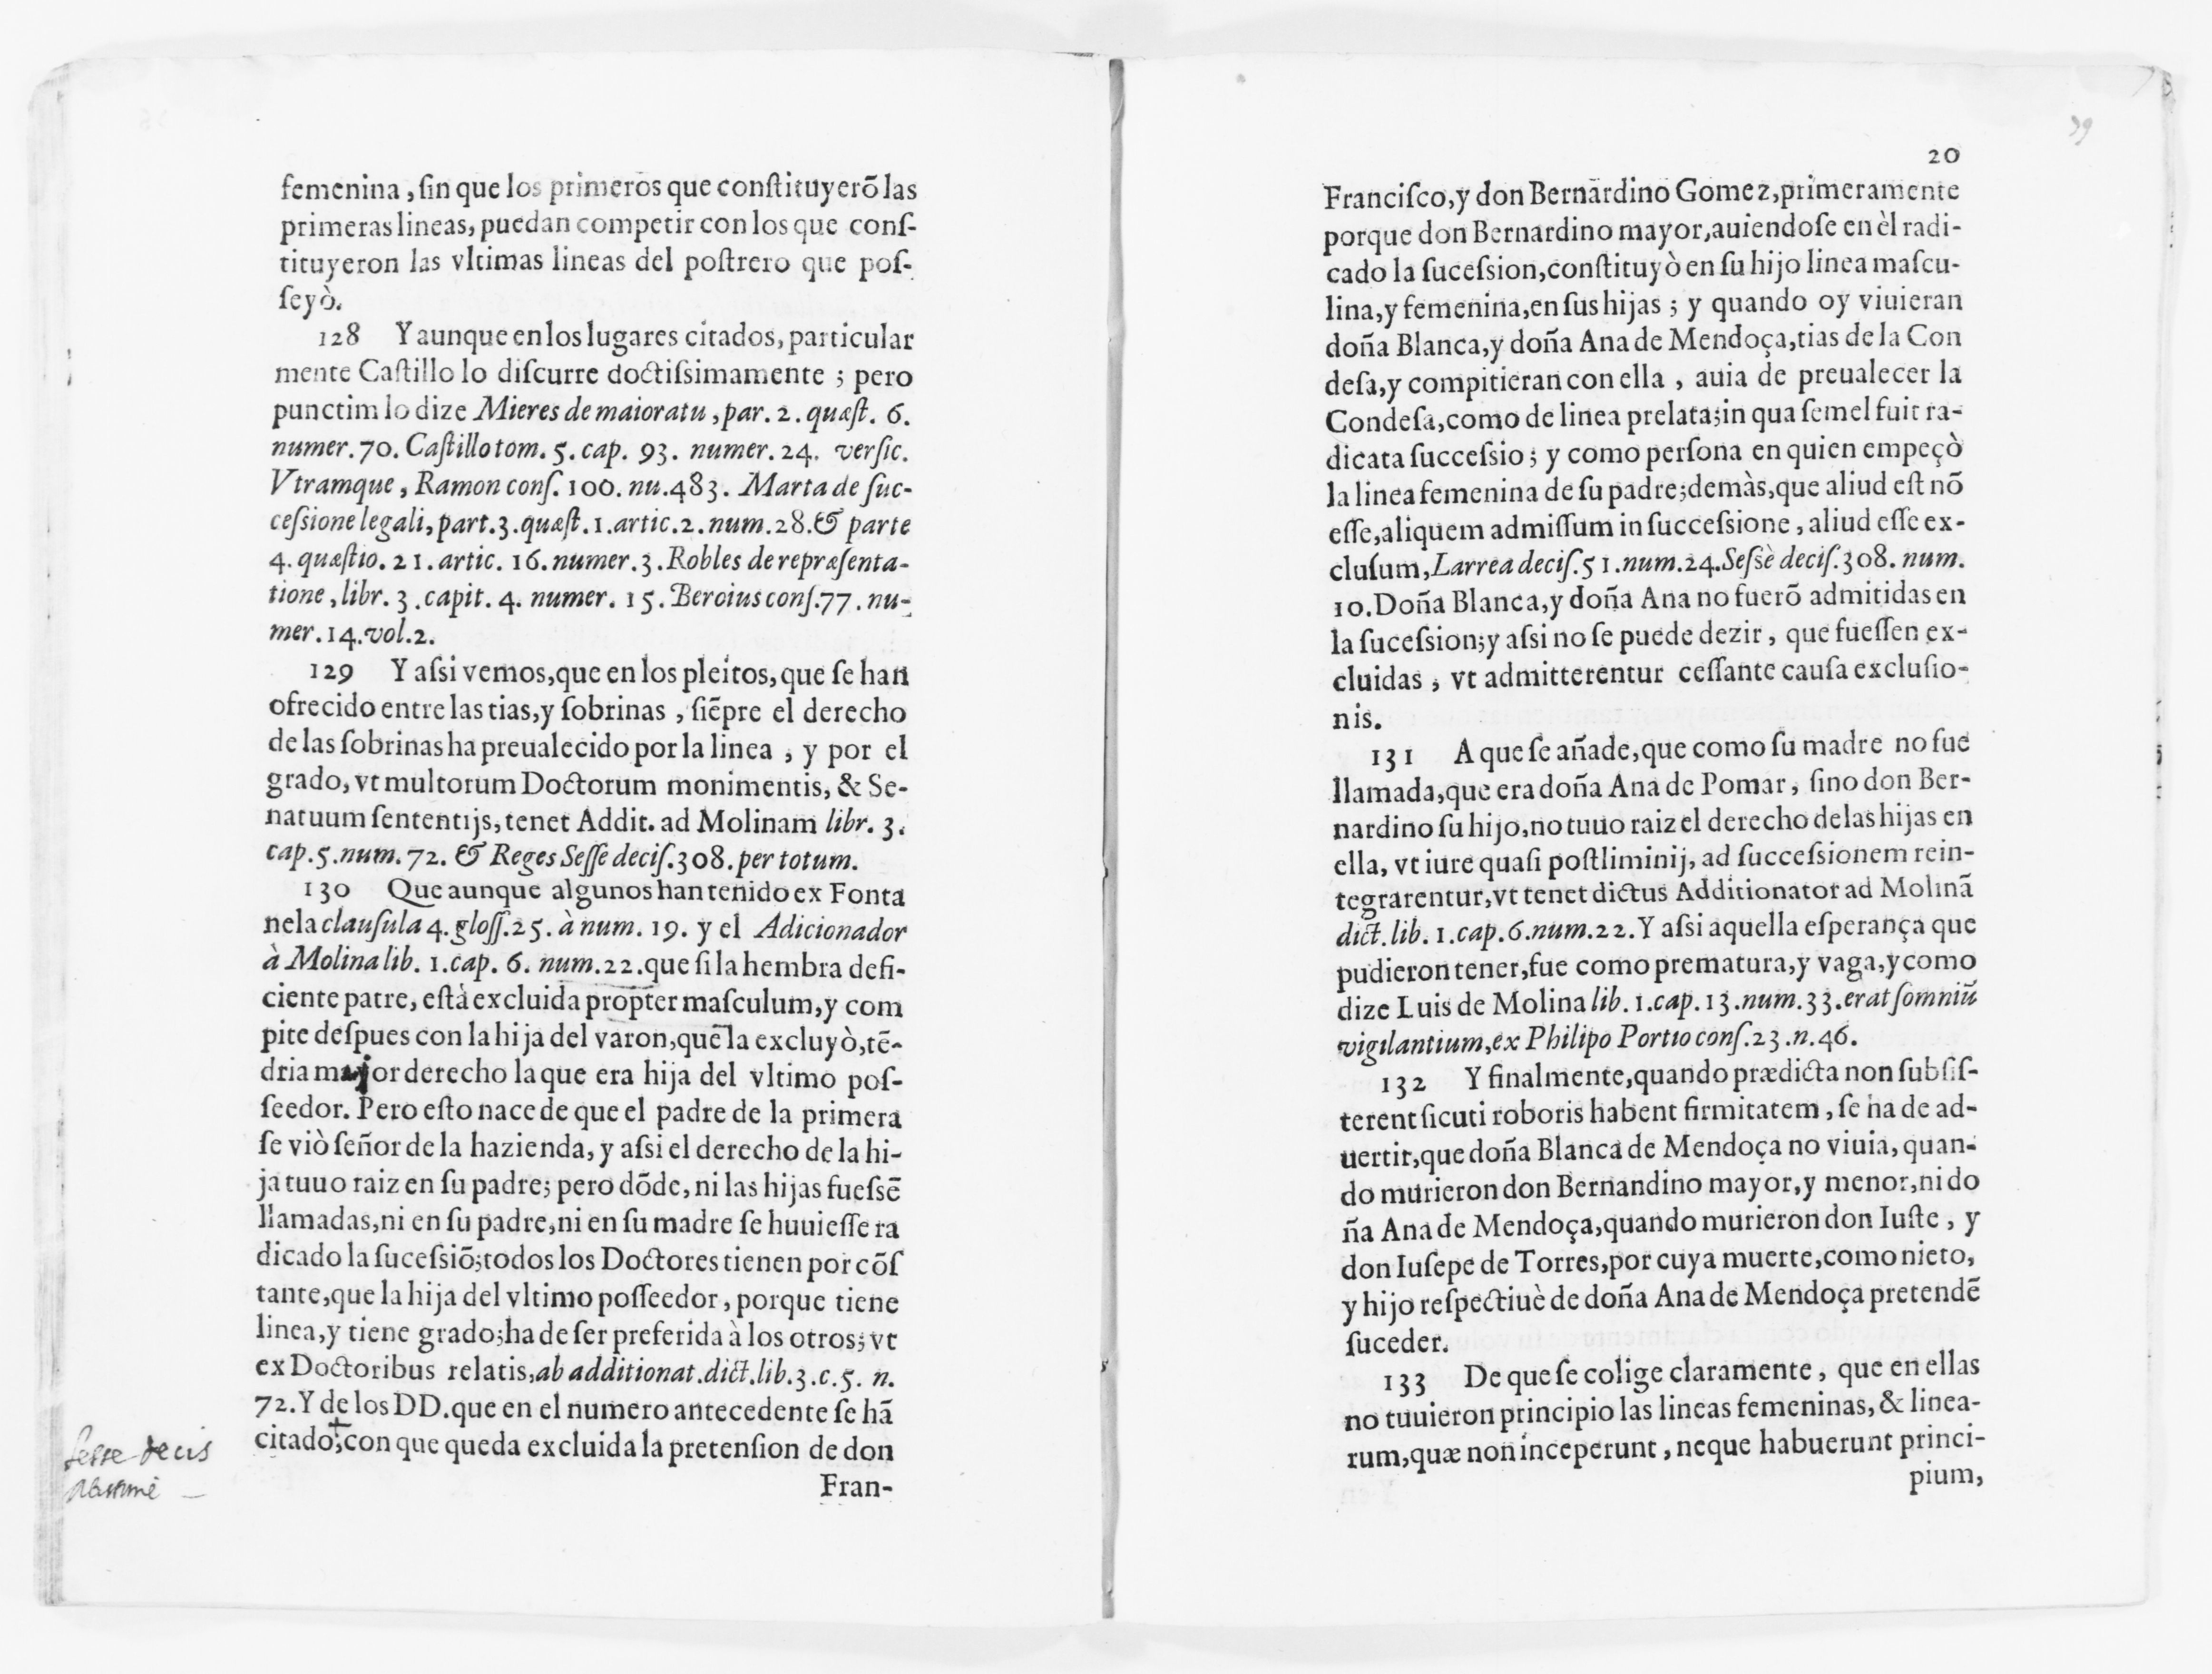 femenina, ſin que los primeros que conſtituyerõ las
primeras lineas, puedan competir con los que conſ-
tituyeron las vltimas lineas del poſtrero que poſ-
ſeyò.
128 Y aunque en los lugares citados, particular
mente Caſtillo lo diſcurre doctiſsimamente ; pero
punctim lo dize Mieres de maioratu, par. 2. quæſt. 6.
numer. 70. Caſtillo tom. 5. cap. 93. numer. 24. verſic.
Vtramque, Ramon conſ. 100. nu. 483. Marta de ſuc-
ceſsione legali, part. 3. quæſt. 1. artic. 2. num. 28. & parte
4. quæſtio. 21. artic. 16. numer. 3. Robles de repræſenta-
tione, libr. 3. capit. 4. numer. 15. Beroius conſ. 77. nu-
mer. 14. vol. 2.
129 Y aſsi vemos, que en los pleitos, que ſe han
ofrecido entre las tias, y ſobrinas, ſiẽpre el derecho
de las ſobrinas ha preualecido por la linea, y por el
grado, vt multorum Doctorum monimentis, & Se-
natuum ſententijs, tenet Addit. ad Molinam libr. 3.
cap. 5. num. 72. & Reges Seſſe deciſ. 308. per totum.
130 Que aunque algunos han tenido ex Fonta
nela clauſula 4. gloſſ. 25. à num. 19. y el Adicionador
à Molina lib. 1. cap. 6. num. 22. que ſi la hembra defi-
ciente patre, eſtà excluida propter maſculum, y com
pite deſpues con la hija del varon, que la excluyò, tẽ-
dria major derecho la que era hija del vltimo poſ-
ſeedor. Pero eſto nace de que el padre de la primera
ſe viò ſeñor de la hazienda, y aſsi el derecho de la hi-
ja tuuo raiz en ſu padre; pero dõde, ni las hijas fueſsẽ
llamadas, ni en ſu padre, ni en ſu madre ſe huuieſſe ra
dicado la ſuceſsiõ; todos los Doctores tienen por cõſ
tante, que la hija del vltimo poſſeedor, porque tiene
linea, y tiene grado; ha de ſer preferida à los otros; vt
ex Doctoribus relatis, ab additionat. dict. lib. 3. c. 5. n.
72. Y de los DD. que en el numero antecedente ſe hã
citado; con que queda excluida la pretenſion de don
Fran-
ſeſſe decis
20
Franciſco, y don Bernardino Gomez, primeramente
porque don Bernardino mayor, auiendoſe en èl radi-
cado la ſuceſsion, conſtituyò en ſu hijo linea maſcu-
lina, y femenina, en ſus hijas ; y quando oy viuieran
doña Blanca, y doña Ana de Mendoça, tias de la Con
deſa, y compitieran con ella, auia de preualecer la
Condeſa, como de linea prelata; in qua ſemel fuit ra-
dicata ſucceſsio; y como perſona en quien empeçò
la linea femenina de ſu padre; demàs, que aliud eſt nõ
eſſe, aliquem admiſſum in ſucceſsione, aliud eſſe ex-
cluſum, Larrea deciſ. 51. num. 24. Seſsè deciſ. 308. num.
10. Doña Blanca, y doña Ana no fuerõ admitidas en
la ſuceſsion; y aſsi no ſe puede dezir, que fueſſen ex-
cluidas, vt admitterentur ceſſante cauſa excluſio-
nis.
131 A que ſe añade, que como ſu madre no fue
llamada, que era doña Ana de Pomar, ſino don Ber-
nardino ſu hijo, no tuuo raiz el derecho de las hijas en
ella, vt iure quaſi poſtliminij, ad ſucceſsionem rein-
tegrarentur, vt tenet dictus Additionator ad Molinã
dict. lib. 1. cap. 6. num. 22. Y aſsi aquella eſperança que
pudieron tener, fue como prematura, y vaga, y como
dize Luis de Molina lib. 1. cap. 13. num. 33. erat ſomniũ
vigilantium, ex Philipo Portio conſ. 23. n. 46.
132 Y finalmente, quando prædicta non ſubſiſ-
terent ſicuti roboris habent firmitatem, ſe ha de ad-
uertir, que doña Blanca de Mendoça no viuia, quan-
do murieron don Bernandino mayor, y menor, ni do
ña Ana de Mendoça, quando murieron don Iuſte, y
don Iuſepe de Torres, por cuya muerte, como nieto,
y hijo reſpectiuè de doña Ana de Mendoça pretendẽ
ſuceder.
133 De que ſe colige claramente, que en ellas
no tuuieron principio las lineas femeninas, & linea-
rum, quæ non inceperunt, neque habuerunt princi-
pium,